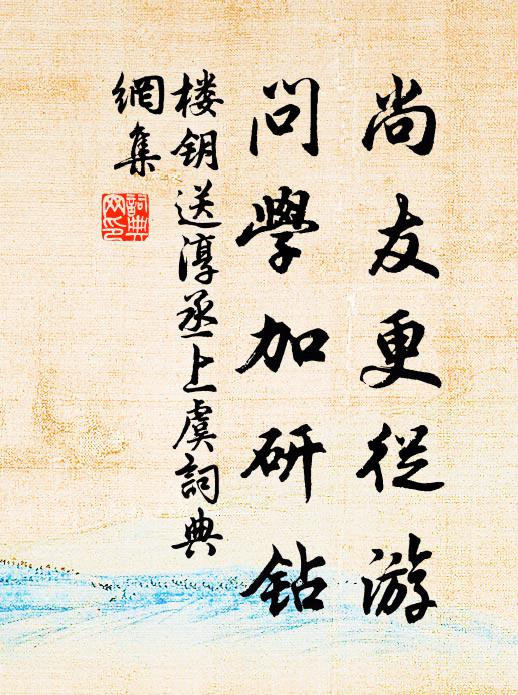 尚友更從游
问學加研钻
楼钥送淳丞上虞詞典
網集
詞典网印